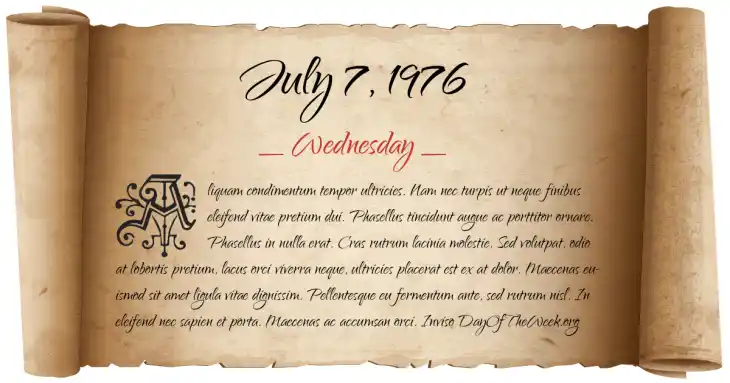 July 7, 1976
_ Wednesday _
Aliquam condimentum tempor ultricies. Nam nec turpis ut neque finibus
eleifend vitae pretium dui. Phasellus tincidunt augue ac porttitor ornare.
Phasellus in nulla erat. Cras rutrum lacinia molestie. Sed volutpat, odio
at lobortis pretium, lacus orci viverra neque, ultricies placerat est ex at dolor. Maecenas eu-
ismod sit amet ligula vitae dignissim. Pellentesque eu fermentum ante, sed rutrum nisl. In
eleifend nec sapien et porta. Maecenas ac accumsan orci. Inviso DayOfTheWeek.org